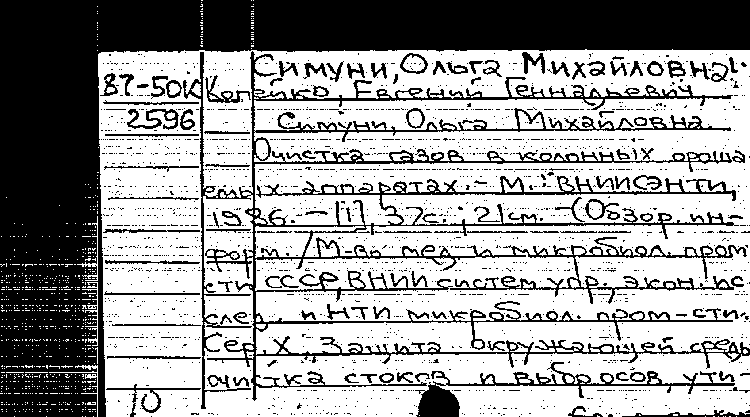 Симуни, Ольга Михайловна
87-50К Копейко, Евгений Геннадьевич,
2596 Симуни, Ольга Михайловна.
Очистка газов в колонных ороша-
емых аппаратах. - М.: ВНИИСЭНТИ,
1986. - [1], 37с.; 21см. - (Обзор. ин-
форм. / М-во мед. и микробиол. пром
сти СССР, ВНИИ систем упр., экон. ис-
след. и НТИ микробиол. пром-сти.
Сер. X, "Защита окружающей среды
очистка стоков и выбросов, ути-
10